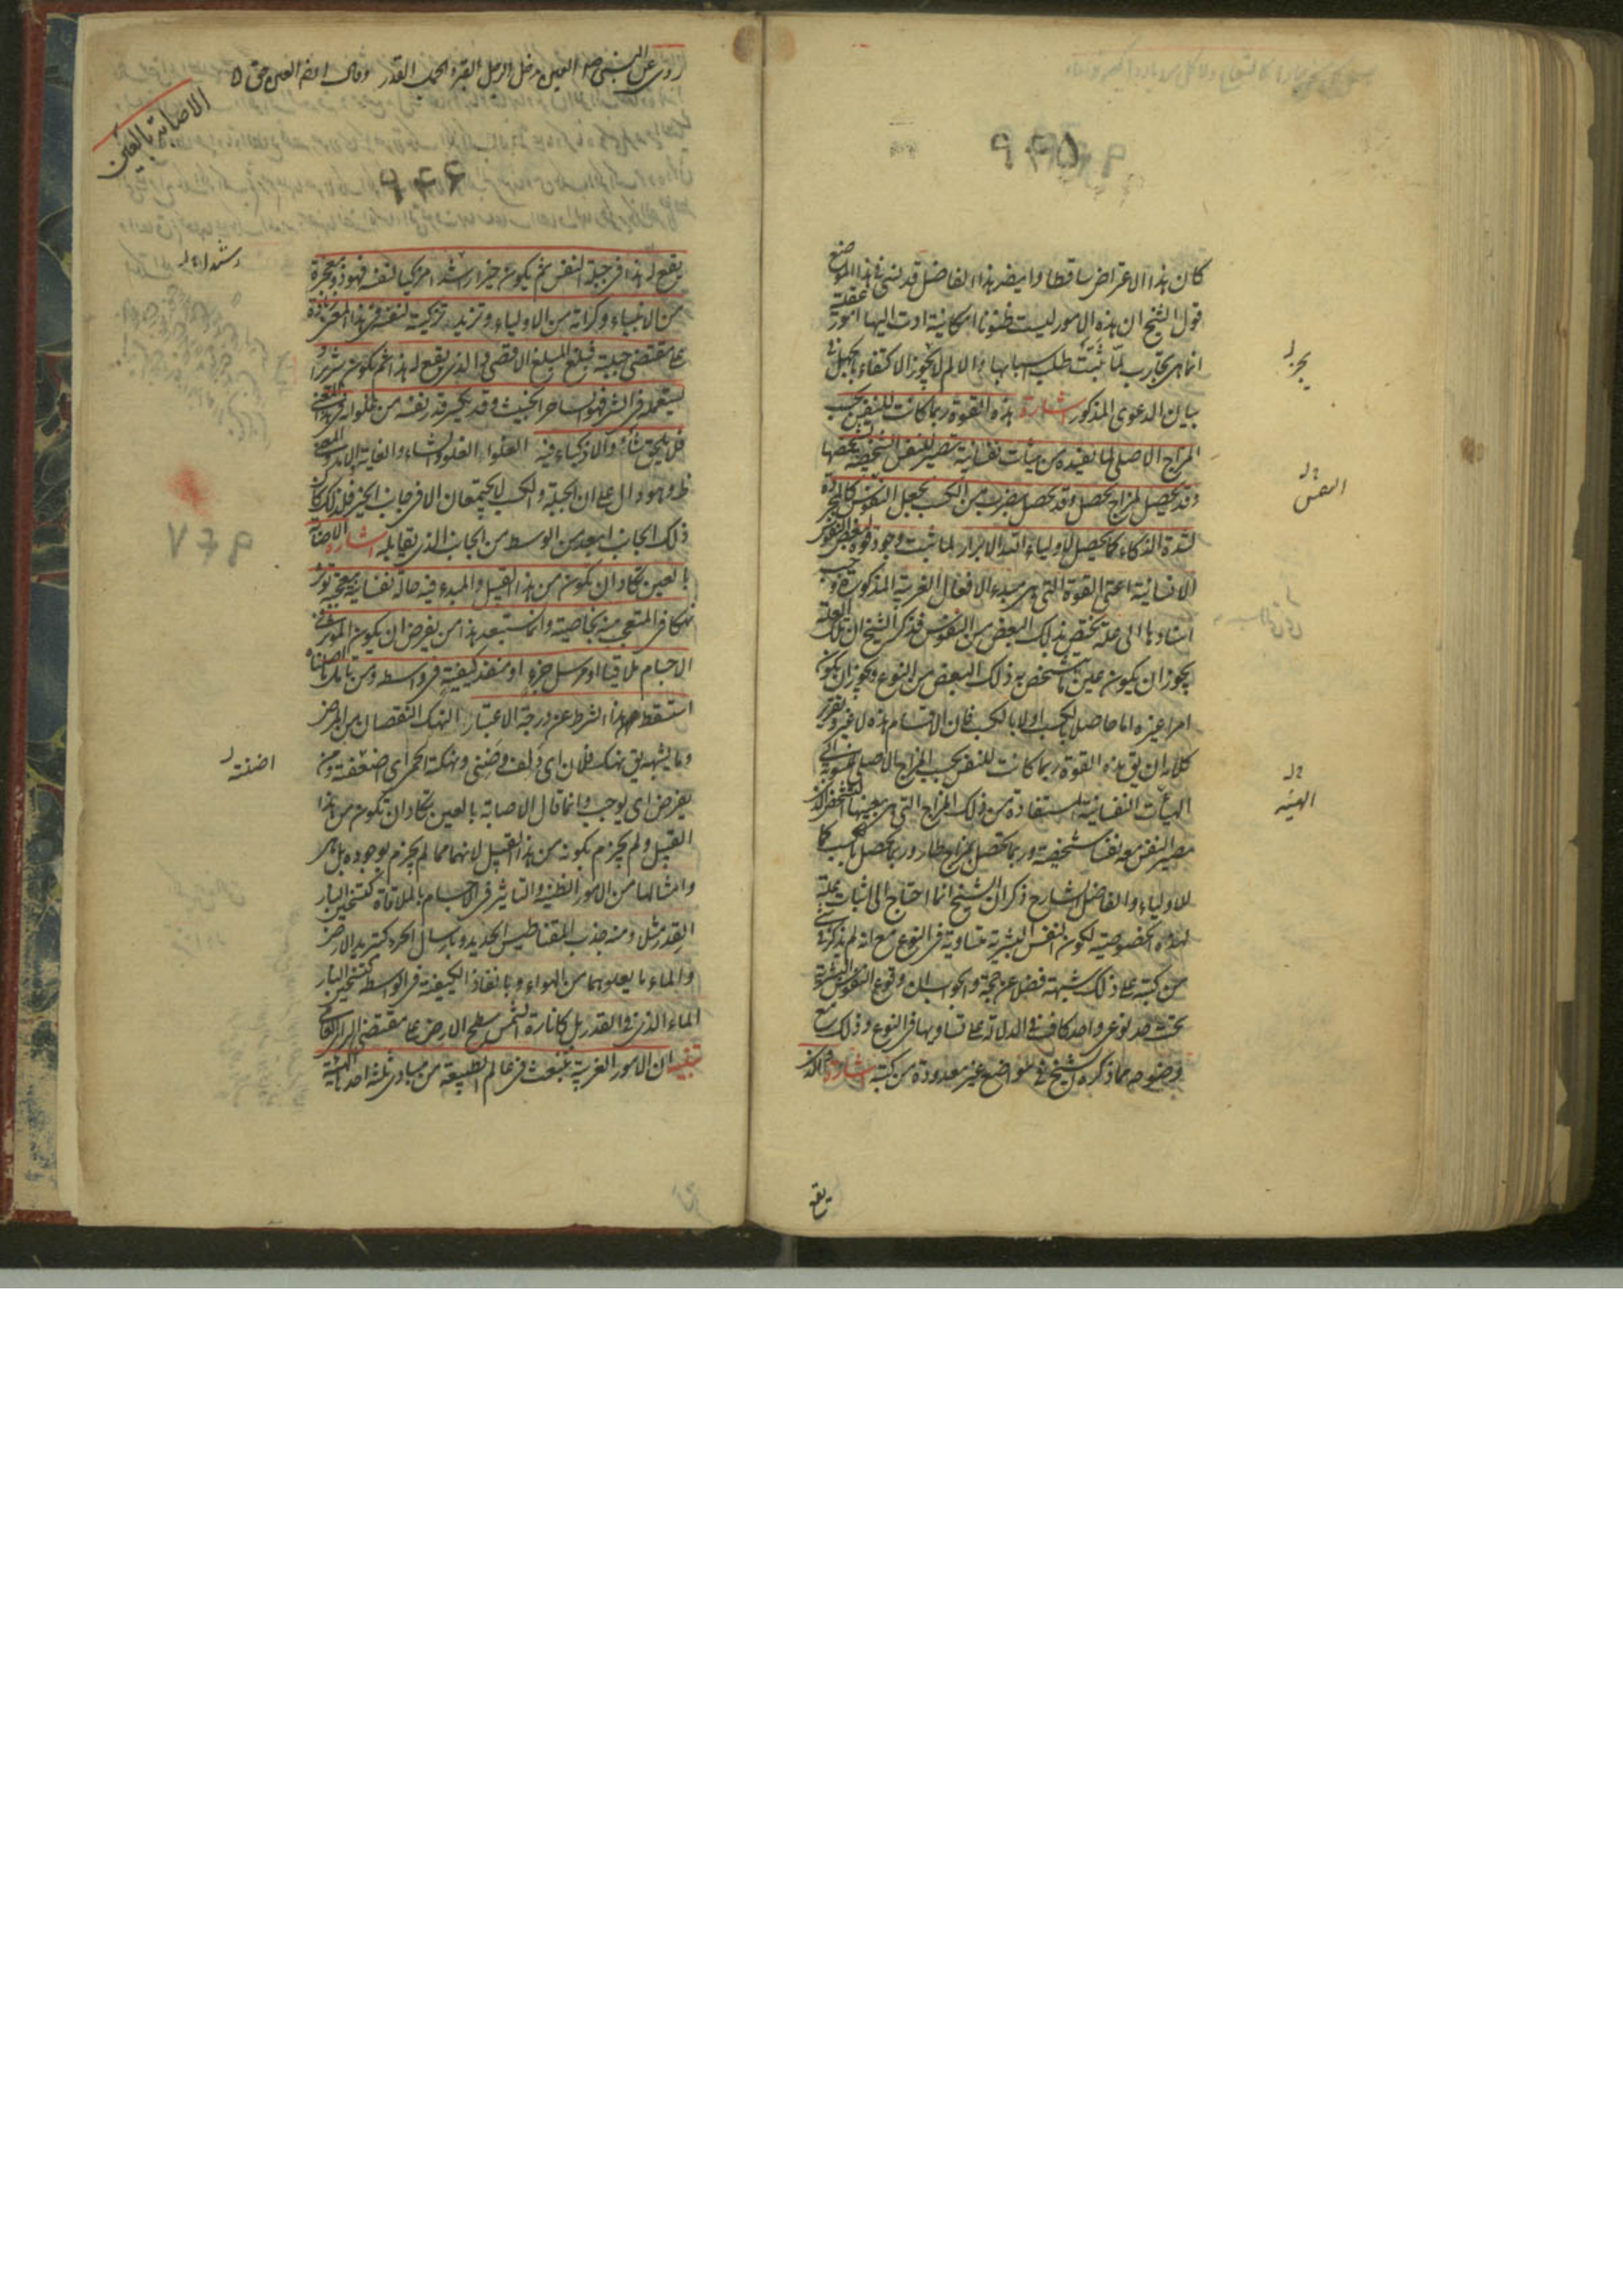 كان هذا الاعتراض ساقطا وايضا هذا الفاضل قد نسى فى هذا الموضع
قول الشيخ ان هذه الامور ليست ظنونا امكانية ادت اليها امور عقلية
انما هى تجارب لما ثبتت طلب اسبابها والا لم لايجوز الاكتفاء بالجهل فى
بيان الدعوى المذكور اشارة هذه القوة ربما كانت للنفس بحسب
المزاج الاصلى لما تفيده من هيئات نفسانية تصير للنفس الشخصية تشخصها
وقد يحصل لمزاج يحصل وقد يحصل بضرب من الكسب يجعل النفس كالمجردة
لشدة الذكاء كما يحصل لاولياء الله الابرار لما ثبت وجود قوة لبعض النفوس
الانسانية اعنى القوة التى هى مبدء الافعال الغريبة المذكورة وجب
اسنادها الى علة تختص بذلك البعض من النفوس فذكر الشيخ ان تلك العلة
يجوز ان يكون عين ما تشخص به ذلك البعض من النوع ويجوز ان يكون
امرا غيره اما حاصلا بالكسب او لا بالكسب فان الاقسام هذه لا غير وتقرير
كلامه ان يق هذه القوة ربما كانت للنفس بحسب المزاج الاصلى منسوبة الى
الهيئات النفسانية المستفادة من ذلك المزاج التى هى بعينها التشخص الذى
تصير النفس معه نفسا شخصية وربما تحصل بمزاج طار وربما تحصل بالكسب كما
للاولياء والفاضل الشارح ذكر ان الشيخ انما احتاج الى اثبات علة
لهذه الخصوصية لكون النفس البشرية متساوية فى النوع مع انه لم يذكر فى شئ
من كتبه على ذلك شبهة فضلا عن حجة والجواب ان وقوع النفوس البشرية
تحت حد نوعى واحد كاف فى الدلالة على تساويها فى النوع وذلك مع
وضوحه مما ذكره الشيخ فى مواضع غير معدودة من كتبه اشارة والذى
يقع
النفس
الهيئة
روى عن النبى صلى العين تدخل الرجل القبر والجمل القدر وقال ايضا العين حق
الاصابة بالعين
يقع له هذا فى جبلة النفس ثم يكون خيرا رشيدا مزكيا لنفسه فهو ذو معجزة
من الانبياء وكرامة من الاولياء وتزيده تزكيته لنفسه فى هذا المعنى زيادة
على مقتضى جبلته فيبلغ المبلغ الاقصى والذى يقع له هذا ثم يكون شريرا و
يستعمله فى الشر فهو الساحر الخبيث وقد يكسر قدر نفسه من غلوائه فى هذا المعنى
فلا يلحق شأو الاذكياء فيه الغلواء الغلو والشأو الغاية والامد والمعنى
ظ وهو دال على ان الجبلة والكسب لا يجتمعان الا فى جانب الخير فلذلك كان
ذلك الجانب ابعد من الوسط من الجانب الذى يقابله اشارة الاصابة
بالعين تكاد ان تكون من هذا القبيل والمبدء فيه حالة نفسانية معجبة تؤثر
نهكا فى المتعجب منه بخاصيته وانما يستبعد هذا من يفرض ان يكون المؤثر فى
الاجسام ملاقيا او مرسل جزء او منفذ كيفية فى واسطة ومن تامل ما اصلناه
استسقط هذا الشرط عن درجة الاعتبار النهك النقصان من المرض
وما يشبهه يق نهك فلان اى دنف وضنى ونهكته الحمى اى اضعفته ومن
يفرض اى يوجب وانما قال الاصابة بالعين تكاد ان تكون من هذا
القبيل ولم يجزم بكونه من هذا القبيل لانها مما لم يجزم بوجوده بل هى
وامثالها من الامور الظنية والتاثير فى الاجسام بالملاقاة كتسخين النار
القدر مثلا ومنه جذب المقناطيس الحديد وبارسال الجزء كتبريد الارض
والماء ما يعلوهما من الهواء وبانفاذ الكيفية فى الواسطة كتسخين النار
الماء الذى فى القدر بل كانارة الشمس سطح الارض على مقتضى الراى العامى
تنبيه ان الامور الغريبة تنبعث فى عالم الطبيعة من مبادى ثلثة احدها الهيئة
اضنته